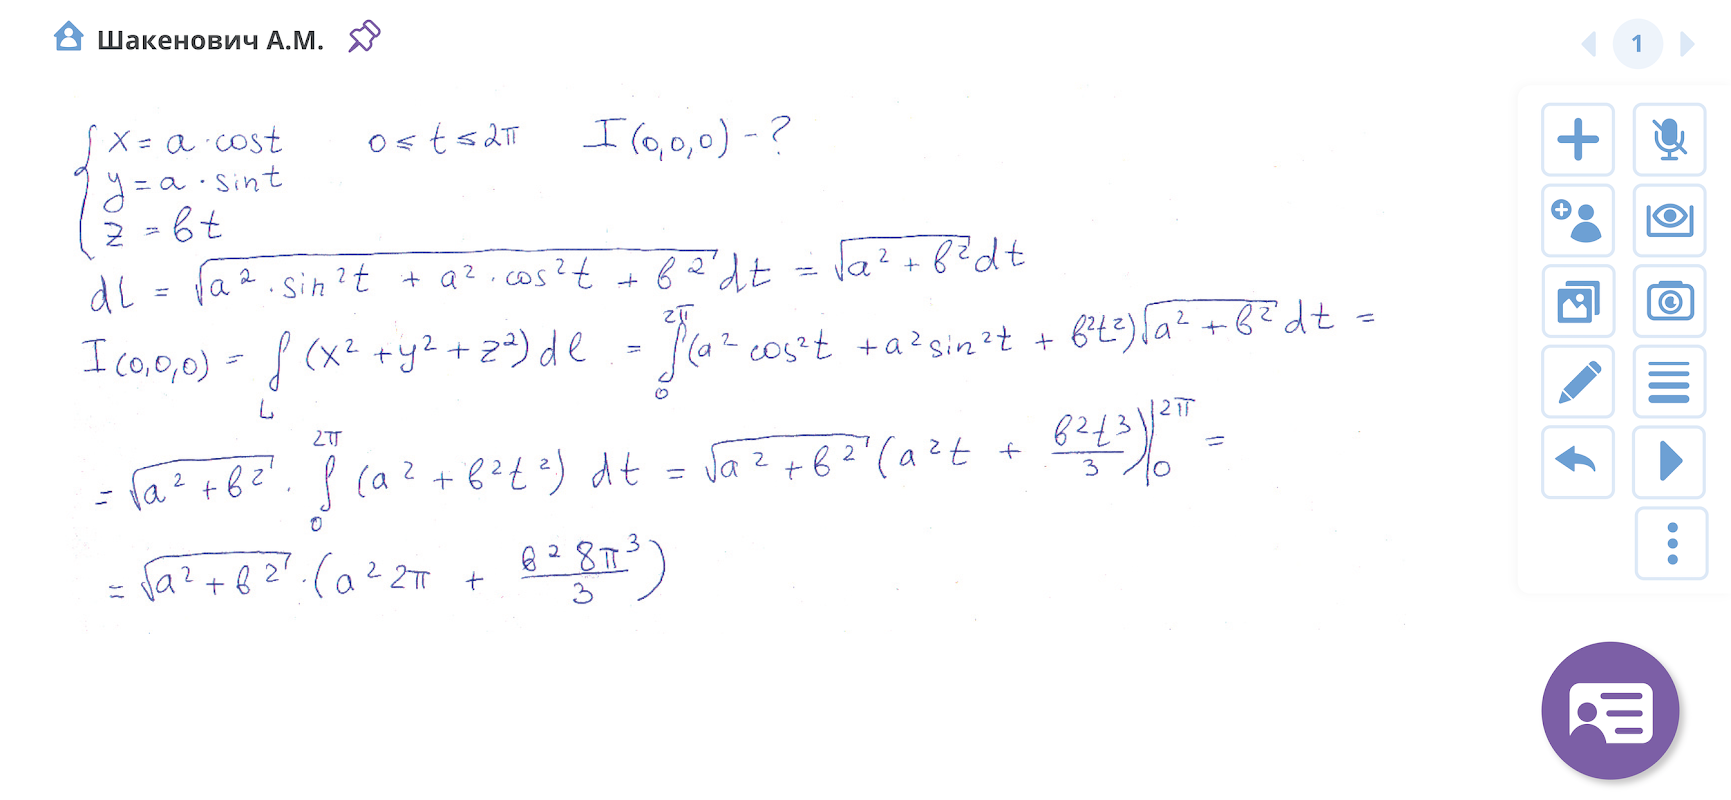 Шакенович А.М.
1
{ x = a · cost   0 ≤ t ≤ 2π   I(0,0,0) - ?
y = a · sint
z = bt
dL = √(a² · sin²t + a² · cos²t + b²) dt = √(a² + b²) dt
I(0,0,0) = ∫_L (x² + y² + z²) dl = ∫₀^2π (a² cos²t + a² sin²t + b²t²) √(a² + b²) dt =
= √(a² + b²) · ∫₀^2π (a² + b²t²) dt = √(a² + b²) (a²t + b²t³/3)|₀^2π =
= √(a² + b²) · (a² 2π + b² 8π³/3)